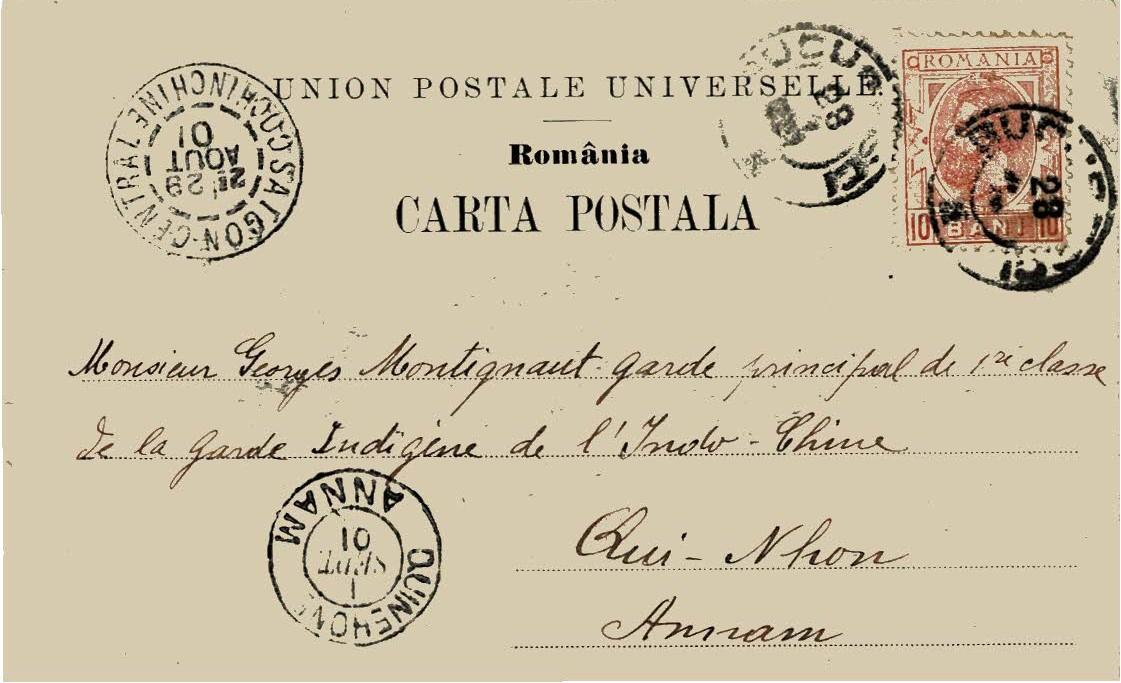 UNION POSTALE UNIVERSELLE
România
CARTA POSTALA
ROMANIA
10 BANI 10
28
28
SAIGON-CENTRAL COCHINCHINE
2E 29
AOUT
01
Monsieur Georges Montignaut garde principal de 1re classe
de la garde Indigène de l'Indo-Chine
Qui-Nhon
Annam
QUINHONE
ANNAM
1
SEPT
01